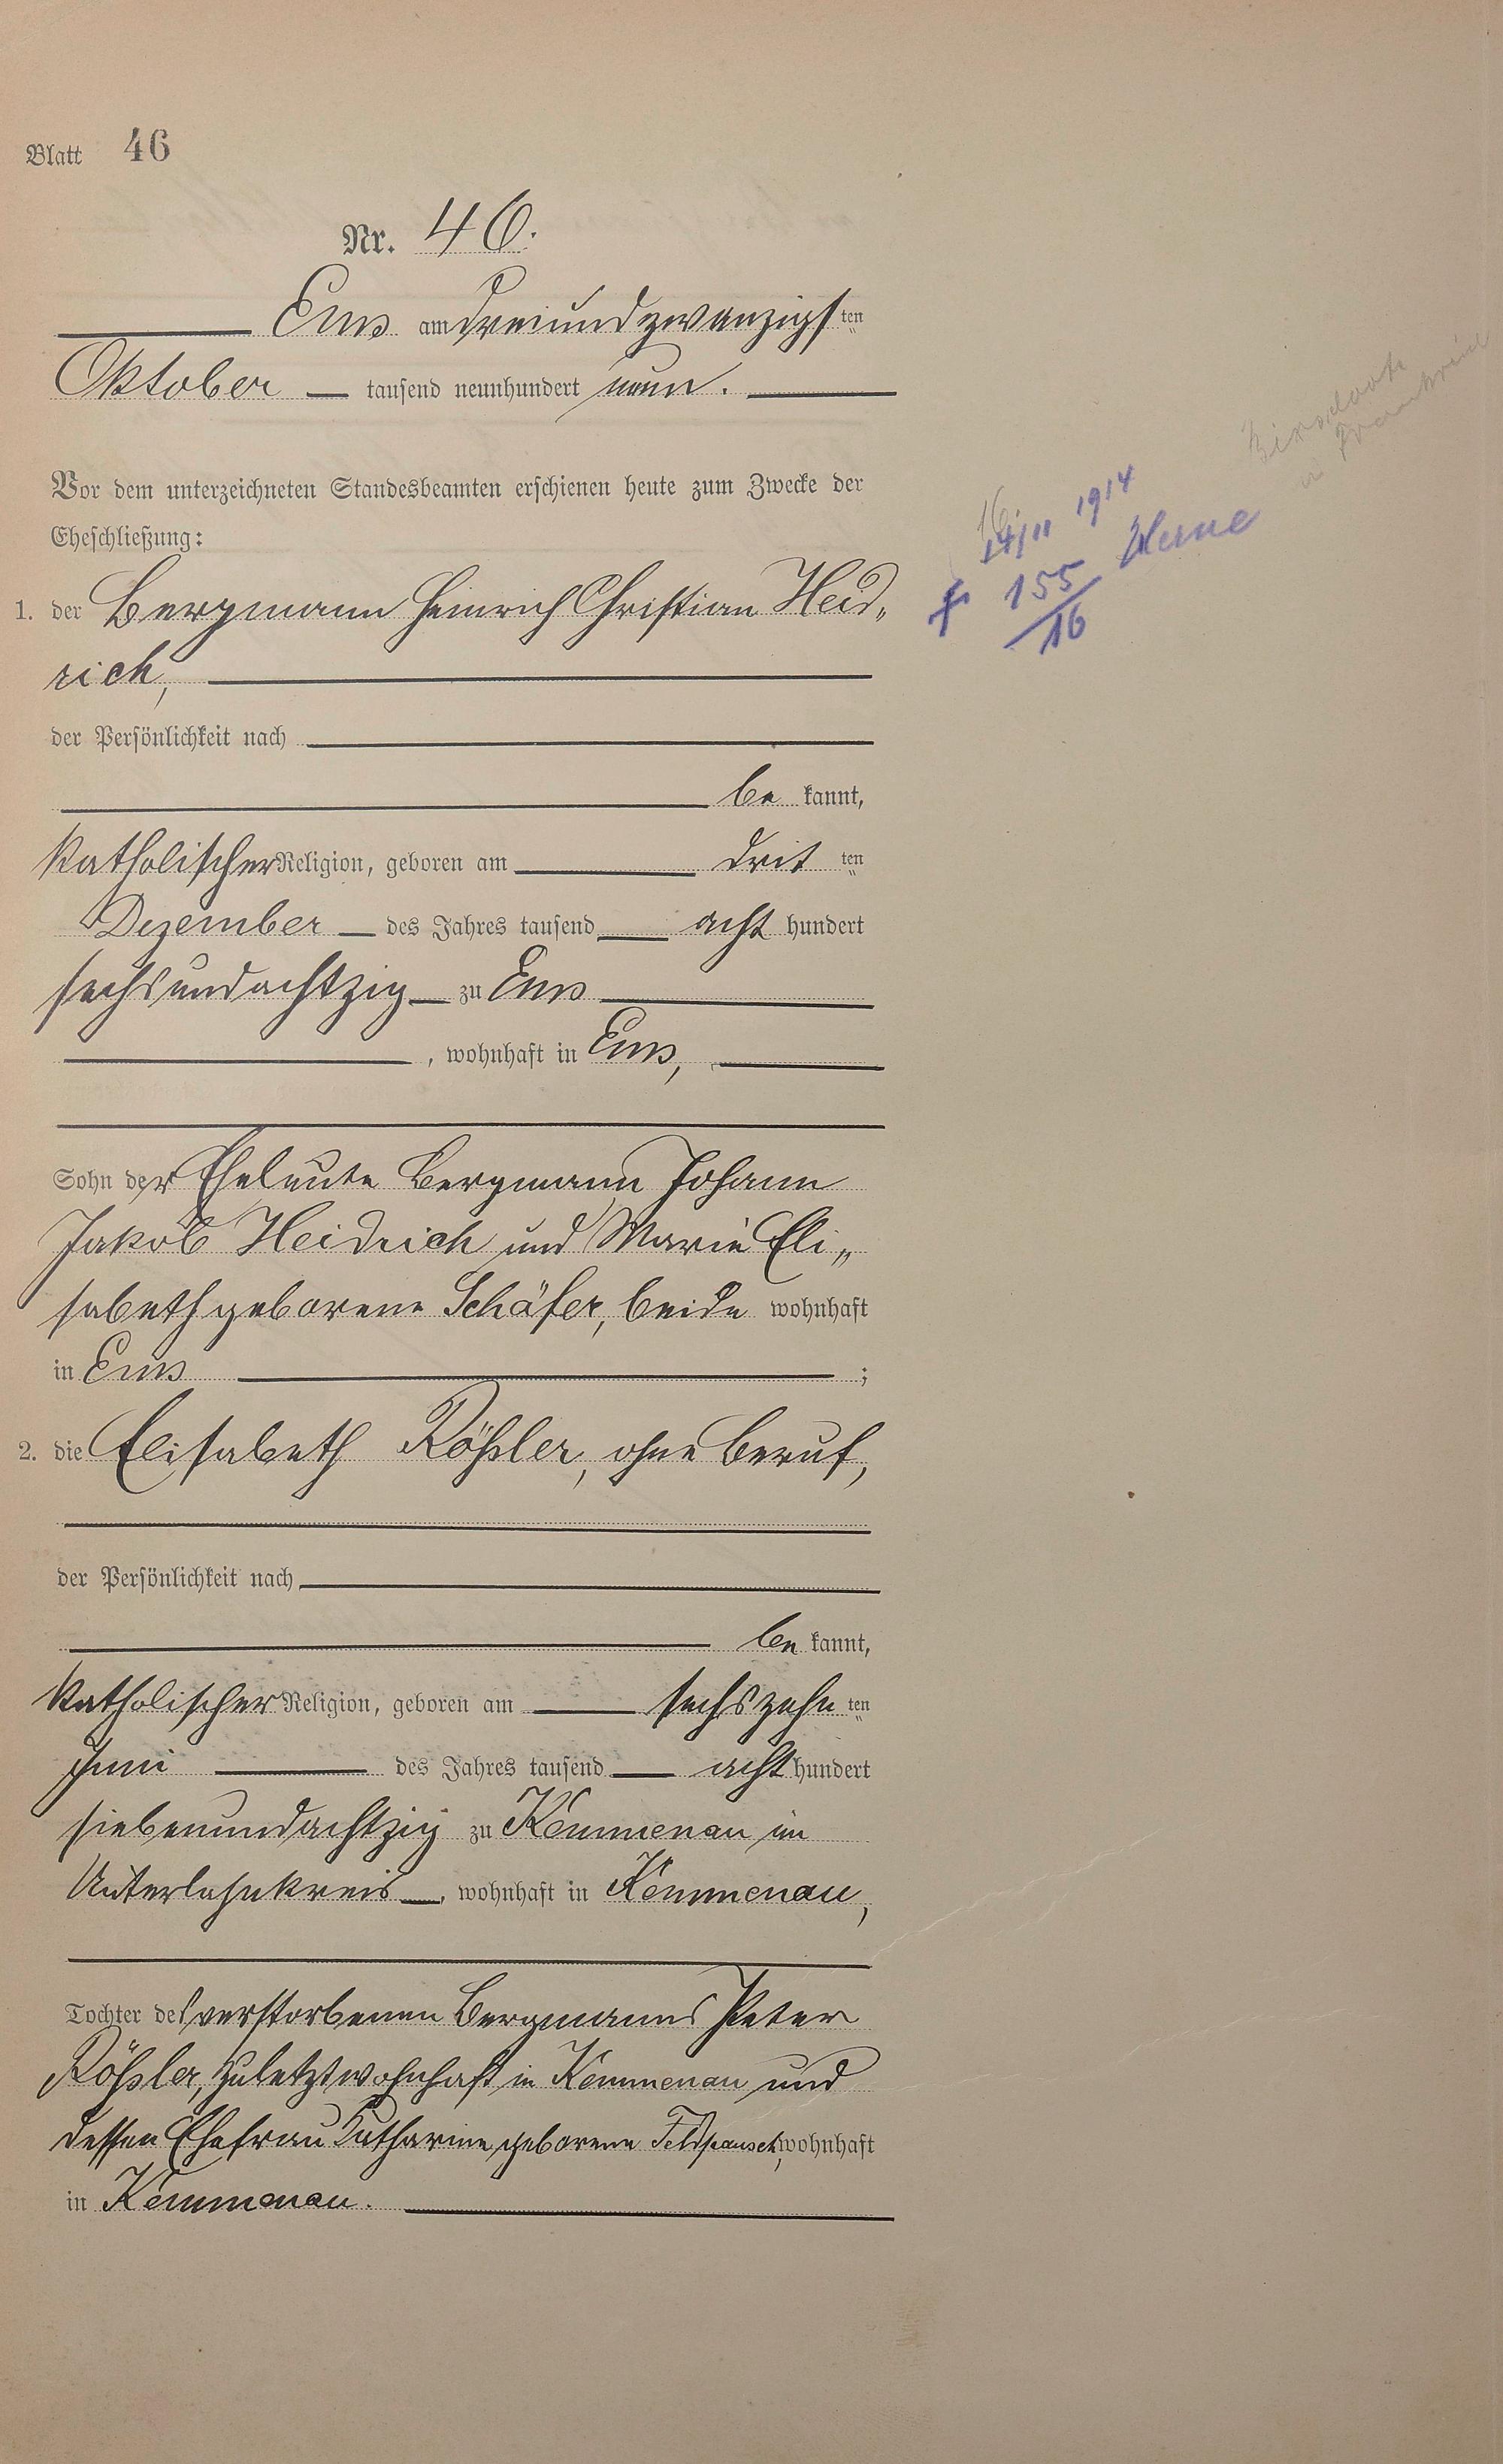 Blatt 46
Nr. 46.
Ems am dreiundzwanzigsten
Oktober tausend neunhundert neun.
Vor dem unterzeichneten Standesbeamten erschienen heute zum Zwecke der
Eheschließung:
1. der Bergmann Heinrich Christian Heid„
rich,
der Persönlichkeit nach
be kannt,
katholischer Religion, geboren am dritten
Dezember des Jahres tausend acht hundert
sechsundachtzig zu Ems
, wohnhaft in Ems,
Sohn der Eheleute Bergmann Johann
Jakob Heidrich und Marie Eli„
sabeth geborene Schäfer, beide wohnhaft
in Ems ;
2. die Elisabeth Rößler, ohne Beruf,
der Persönlichkeit nach
be kannt,
katholischer Religion, geboren am sechszehnten
Juni des Jahres tausend acht hundert
siebenundachtzig zu Kemmenau im
Unterlahnkreis, wohnhaft in Kemmenau,
Tochter des verstorbenen Bergmanns Peter
Rößler, zuletzt wohnhaft in Kemmenau und
dessen Ehefrau Katharine geborene Feldpausch, wohnhaft
in Kemmenau.
1914
155 Herne
16